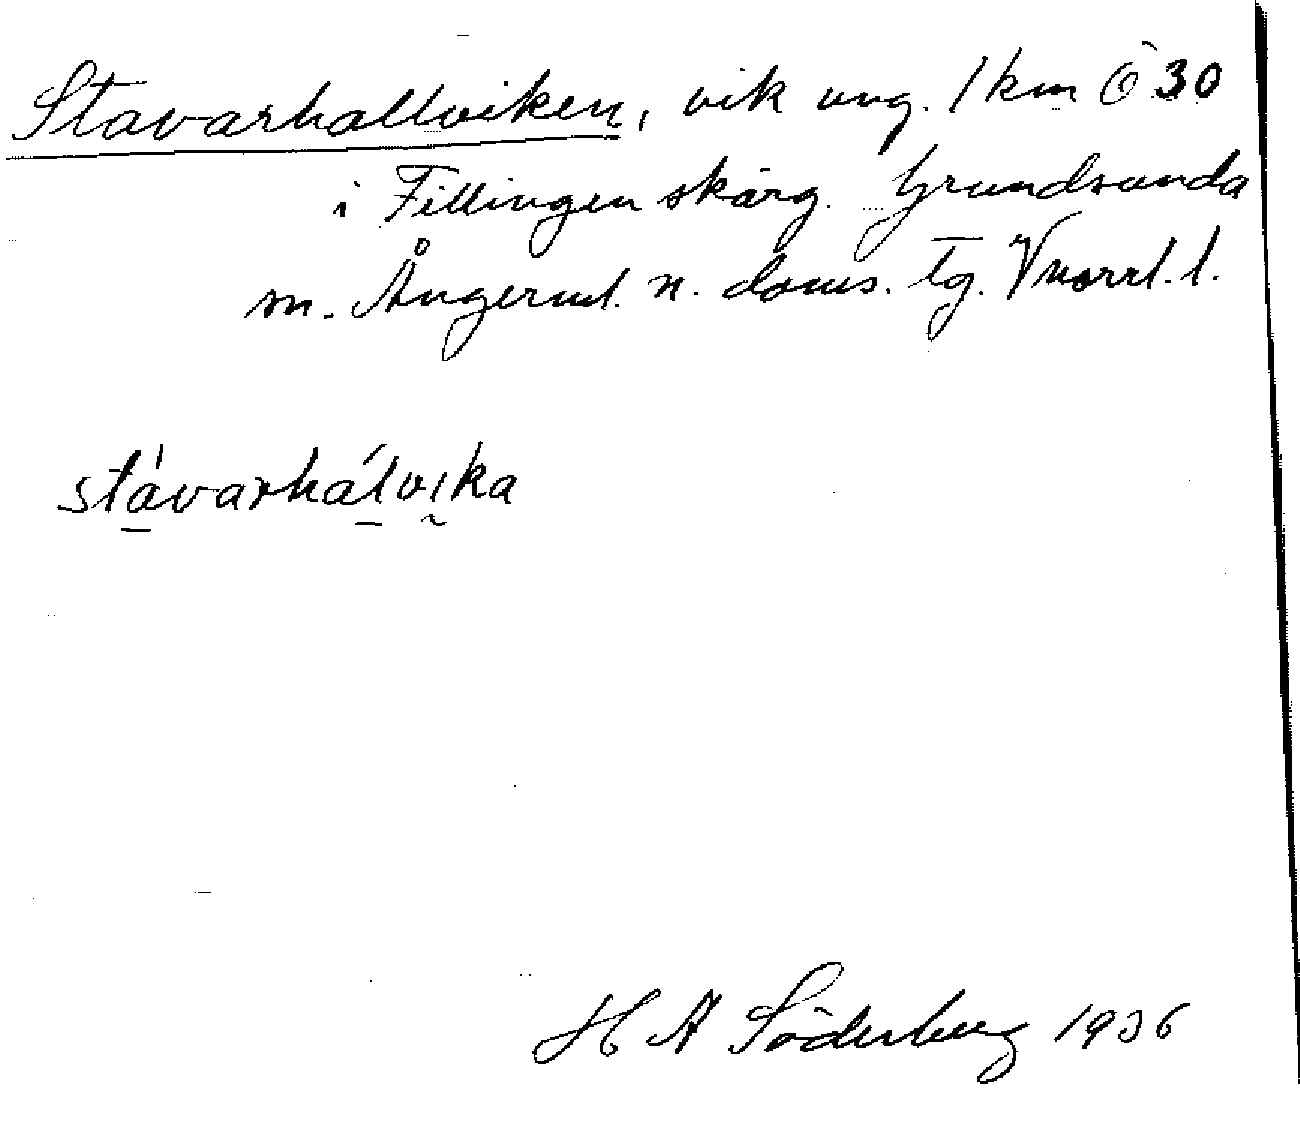 Stavarhallviken, vik ung. 1 km Ö 30
i Fillingen skärg. Grundsunda
sn. Ångerml. n. doms. tg. Vnorrl. l.
stávarhálvika
H A Söderberg 1936